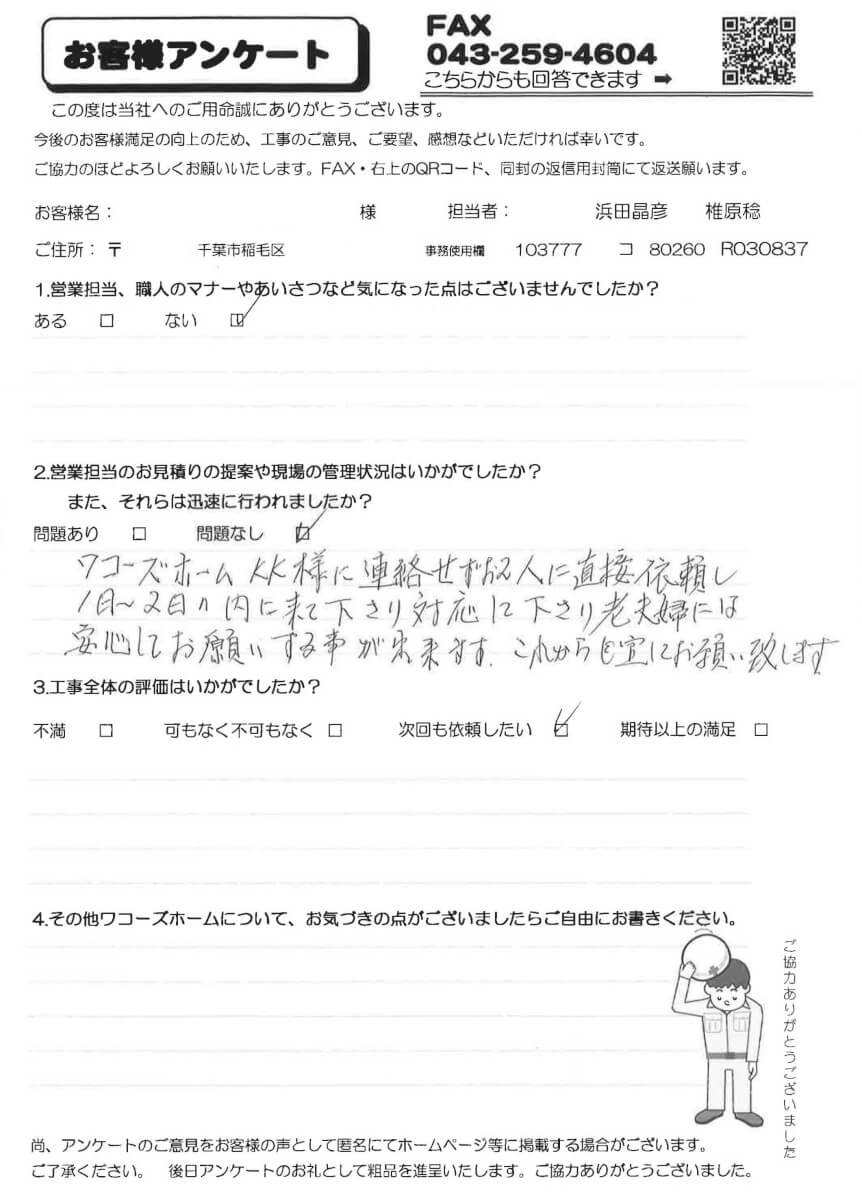 お客様アンケート
FAX
043-259-4604
こちらからも回答できます ➡
この度は当社へのご用命誠にありがとうございます。
今後のお客様満足の向上のため、工事のご意見、ご要望、感想などいただければ幸いです。
ご協力のほどよろしくお願いいたします。FAX・右上のQRコード、同封の返信用封筒にて返送願います。
お客様名： 様 担当者： 浜田晶彦 椎原稔
ご住所：〒 千葉市稲毛区 事務使用欄 103777 コ 80260 R030837
1.営業担当、職人のマナーやあいさつなど気になった点はございませんでしたか？
ある □ ない ☑
2.営業担当のお見積りの提案や現場の管理状況はいかがでしたか？
また、それらは迅速に行われましたか？
問題あり □ 問題なし ☑
ワコーズホームKK様に連絡せずお二人に直接依頼し
1日〜2日の内に来て下さり対応して下さり老夫婦には
安心してお願いする事が出来ます。これからも宜しくお願い致します
3.工事全体の評価はいかがでしたか？
不満 □ 可もなく不可もなく □ 次回も依頼したい ☑ 期待以上の満足 □
4.その他ワコーズホームについて、お気づきの点がございましたらご自由にお書きください。
ご協力ありがとうございました
尚、アンケートのご意見をお客様の声として匿名にてホームページ等に掲載する場合がございます。
ご了承ください。 後日アンケートのお礼として粗品を進呈いたします。ご協力ありがとうございました。